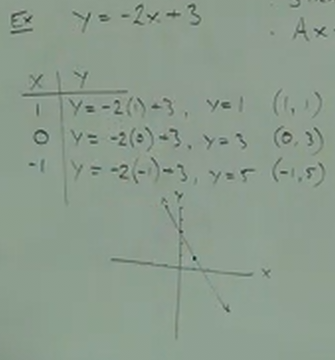 Ex y = -2x + 3
. Ax
x y
1 y = -2(1)+3, y = 1 (1, 1)
0 y = -2(0)+3, y = 3 (0, 3)
-1 y = -2(-1)+3, y = 5 (-1, 5)
y
x